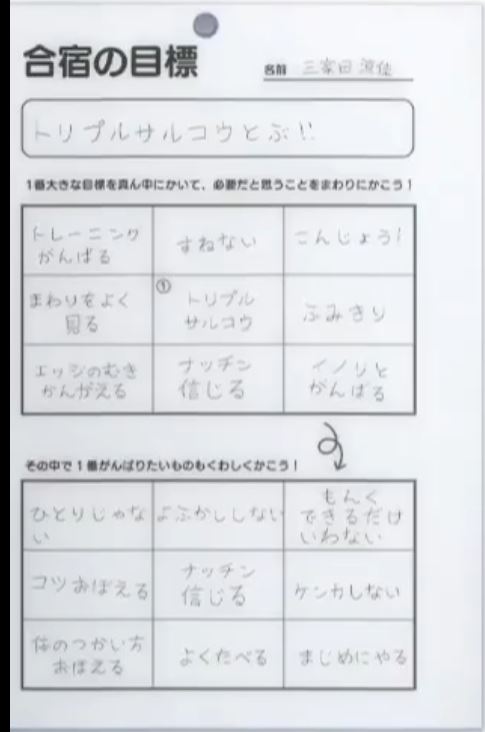 合宿の目標
名前 三家田 涼佳
トリプルサルコウとぶ!!
1番大きな目標を真ん中にかいて、必要だと思うことをまわりにかこう!
トレーニング
がんばる
すねない
こんじょう!
まわりをよく
見る
①
トリプル
サルコウ
ふみきり
エッジのむき
かんがえる
ナッチン
信じる
イノリと
がんばる
その中で1番がんばりたいものもくわしくかこう!
ひとりじゃな
い
よふかししない
もんく
できるだけ
いわない
コツおぼえる
ナッチン
信じる
ケンカしない
体のつかい方
おぼえる
よくたべる
まじめにやる